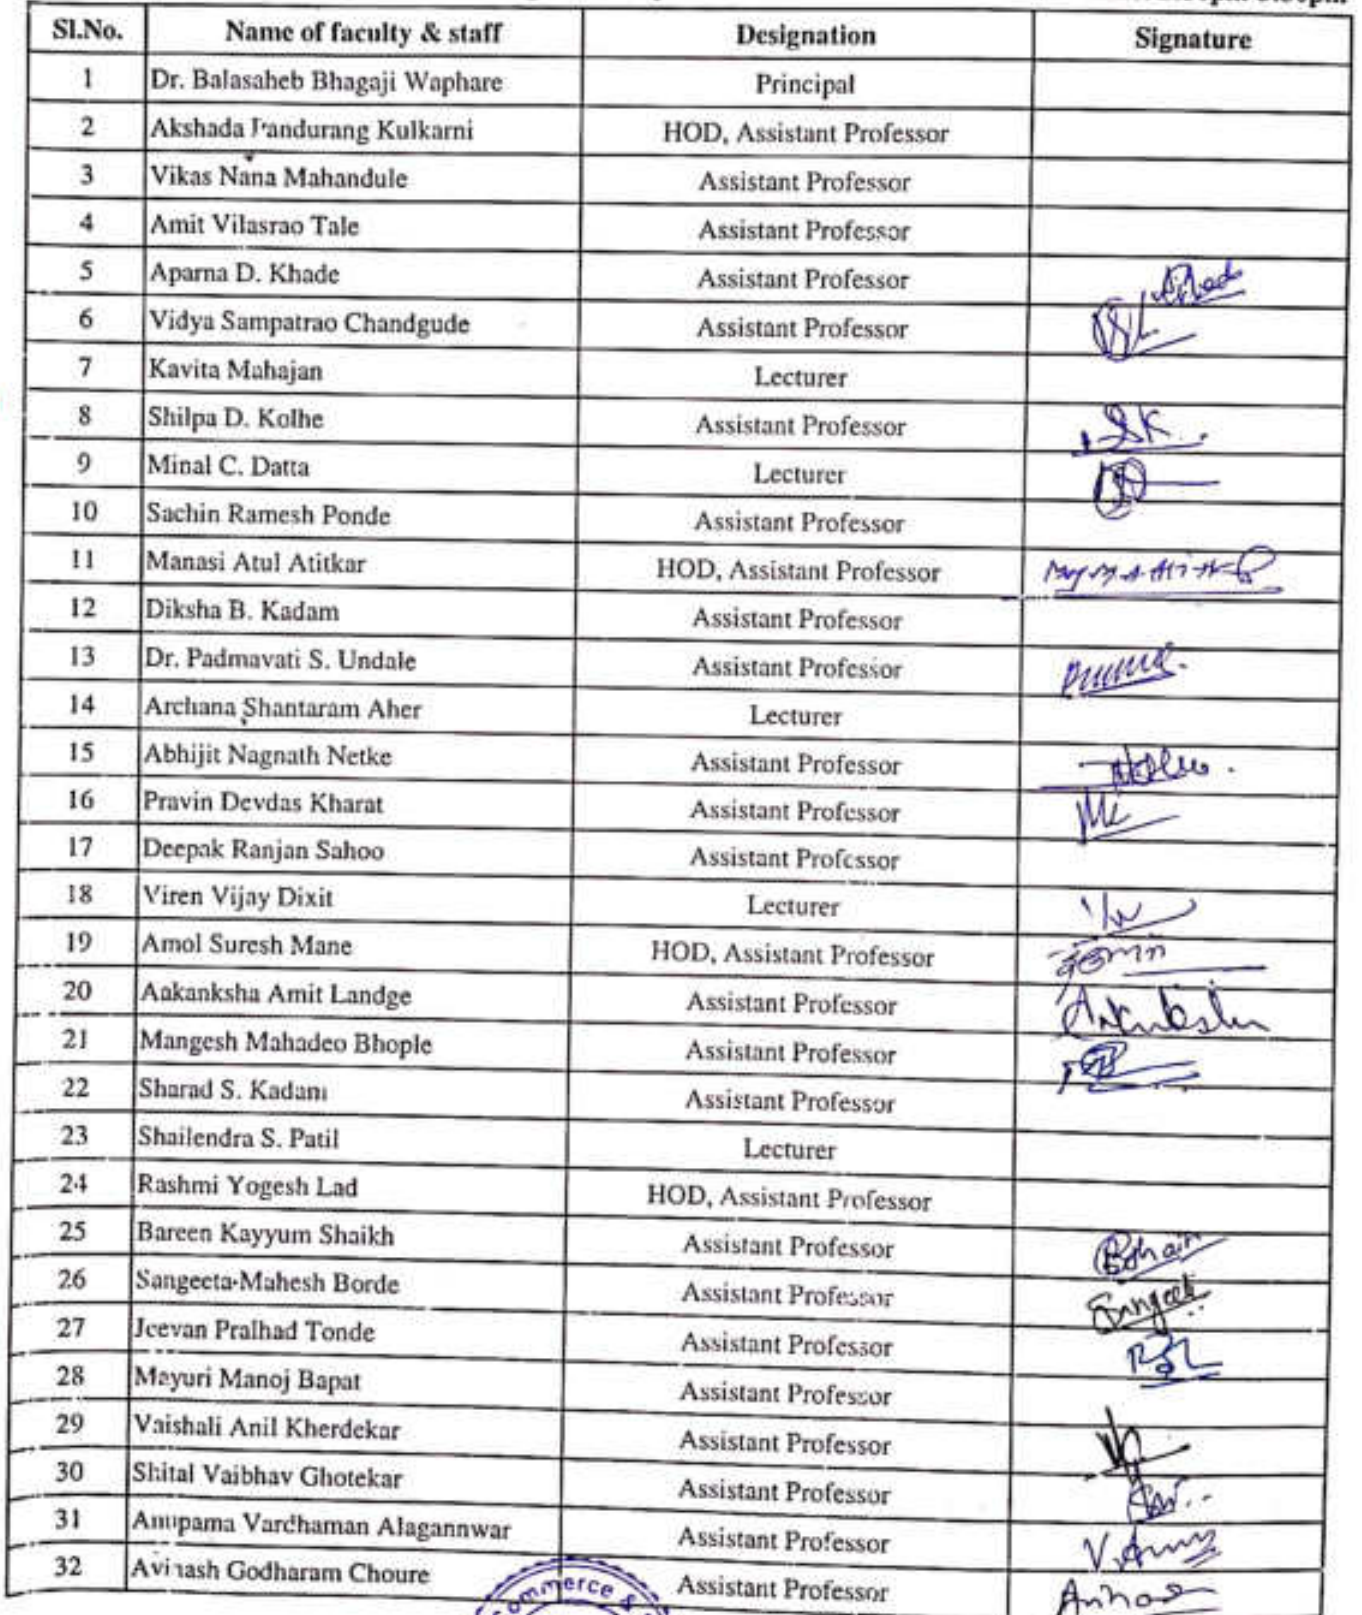 Sl.No. Name of faculty & staff Designation Signature
1 Dr. Balasaheb Bhagaji Waphare Principal
2 Akshada Pandurang Kulkarni HOD, Assistant Professor
3 Vikas Nana Mahandule Assistant Professor
4 Amit Vilasrao Tale Assistant Professor
5 Aparna D. Khade Assistant Professor
6 Vidya Sampatrao Chandgude Assistant Professor
7 Kavita Mahajan Lecturer
8 Shilpa D. Kolhe Assistant Professor SK
9 Minal C. Datta Lecturer
10 Sachin Ramesh Ponde Assistant Professor
11 Manasi Atul Atitkar HOD, Assistant Professor
12 Diksha B. Kadam Assistant Professor
13 Dr. Padmavati S. Undale Assistant Professor
14 Archana Shantaram Aher Lecturer
15 Abhijit Nagnath Netke Assistant Professor
16 Pravin Devdas Kharat Assistant Professor
17 Deepak Ranjan Sahoo Assistant Professor
18 Viren Vijay Dixit Lecturer
19 Amol Suresh Mane HOD, Assistant Professor
20 Aakanksha Amit Landge Assistant Professor
21 Mangesh Mahadeo Bhople Assistant Professor
22 Sharad S. Kadam Assistant Professor
23 Shailendra S. Patil Lecturer
24 Rashmi Yogesh Lad HOD, Assistant Professor
25 Bareen Kayyum Shaikh Assistant Professor
26 Sangeeta Mahesh Borde Assistant Professor
27 Jeevan Pralhad Tonde Assistant Professor
28 Mayuri Manoj Bapat Assistant Professor
29 Vaishali Anil Kherdekar Assistant Professor
30 Shital Vaibhav Ghotekar Assistant Professor
31 Anupama Vardhaman Alagannwar Assistant Professor
32 Avinash Godharam Choure Assistant Professor
ommerce &